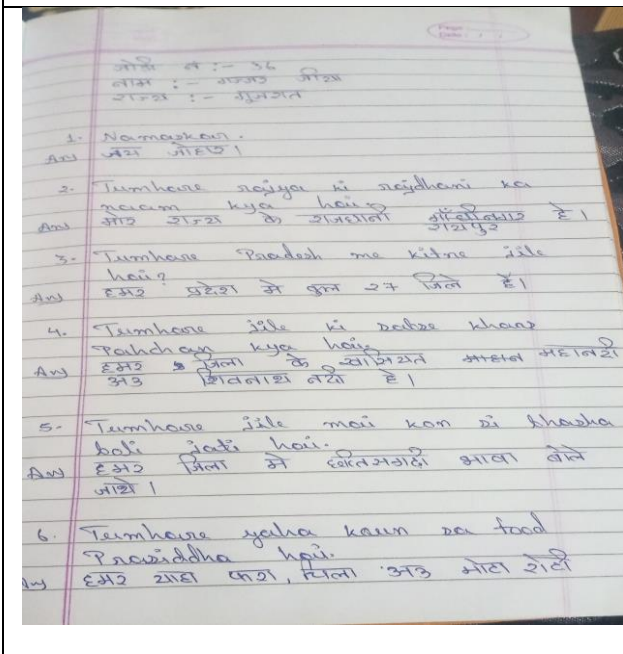 Page :
Date : / /
जोड़ी नं :- 36
नाम :- गज्जर
राज्य :- गुजरात
1. Namaskar.
Ans जय जोहार।
2. Tumhare rajya ki rajdhani ka
naam kya hai?
Ans मोर राज्य के राजधानी गाँधीनगर है।
रायपुर
3. Tumhare Pradesh me kitne jile
hai?
Ans हमर प्रदेश मे कुल 27 जिले हैं।
4. Tumhare jile ki sabse khaas
Pahchan kya hai.
Ans हमर जिला के खासियत महानदी
अउ शिवनाथ नदी हे।
5. Tumhare jile mai kon si bhasha
boli jati hai.
Ans हमर जिला मे छत्तिसगढ़ी भाषा बोले
जाथे।
6. Tumhare yaha kaun sa food
Prasiddha hai.
Ans हमर याहा फरा, चिला अउ मोटा रोटी